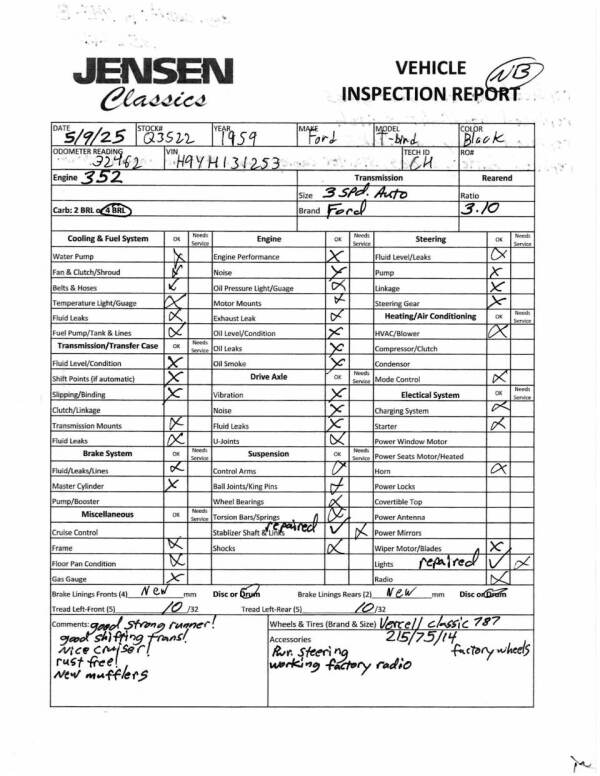 JENSEN
Classics
VEHICLE
INSPECTION REPORT
NB
DATE 5/9/25 STOCK# Q3522 YEAR 1959 MAKE Ford MODEL T-bird COLOR Black
ODOMETER READING 32462 VIN H9YH131253 TECH ID CH RO#
Engine 352 Transmission Rearend
Size 3 Spd. Auto Ratio
Carb: 2 BRL or 4 BRL Brand Ford 3.10
Cooling & Fuel System OK Needs Service Engine OK Needs Service Steering OK Needs Service
Water Pump Engine Performance Fluid Level/Leaks
Fan & Clutch/Shroud Noise Pump
Belts & Hoses Oil Pressure Light/Guage Linkage
Temperature Light/Guage Motor Mounts Steering Gear
Fluid Leaks Exhaust Leak Heating/Air Conditioning OK Needs Service
Fuel Pump/Tank & Lines Oil Level/Condition HVAC/Blower
Transmission/Transfer Case OK Needs Service Oil Leaks Compressor/Clutch
Fluid Level/Condition Oil Smoke Condensor
Shift Points (if automatic) Drive Axle OK Needs Service Mode Control
Slipping/Binding Vibration Electical System OK Needs Service
Clutch/Linkage Noise Charging System
Transmission Mounts Fluid Leaks Starter
Fluid Leaks U-Joints Power Window Motor
Brake System OK Needs Service Suspension OK Needs Service Power Seats Motor/Heated
Fluid/Leaks/Lines Control Arms Horn
Master Cylinder Ball Joints/King Pins Power Locks
Pump/Booster Wheel Bearings Covertible Top
Miscellaneous OK Needs Service Torsion Bars/Springs Power Antenna
Cruise Control Stablizer Shaft & Links repaired Power Mirrors
Frame Shocks Wiper Motor/Blades
Floor Pan Condition Lights repaired
Gas Gauge Radio
Brake Linings Fronts (4) New mm Disc or Drum Brake Linings Rears (2) New mm Disc or Drum
Tread Left-Front (5) 10/32 Tread Left-Rear (5) 10/32
Comments: good strong runner! Wheels & Tires (Brand & Size) Vercell classic 787
good shifting trans! 215/75/14
Nice cruiser! Accessories factory wheels
rust free! Pwr. steering
New mufflers working factory radio